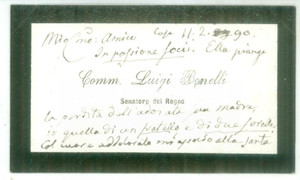 Mio Cmo: Amico Casa 11.2.90.
In passione socii. Ella piange
Comm. Luigi Bonelli
Senatore del Regno
la perdita dell'adorata sua madre,
io quella di un fratello e di due sorelle.
Col cuore addolorato mi associo alla